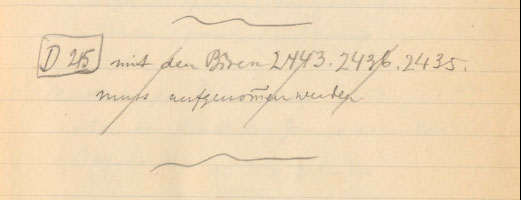 D 215 mit den Büren 2443. 2436. 2435.
muss aufgenom̅en werden.